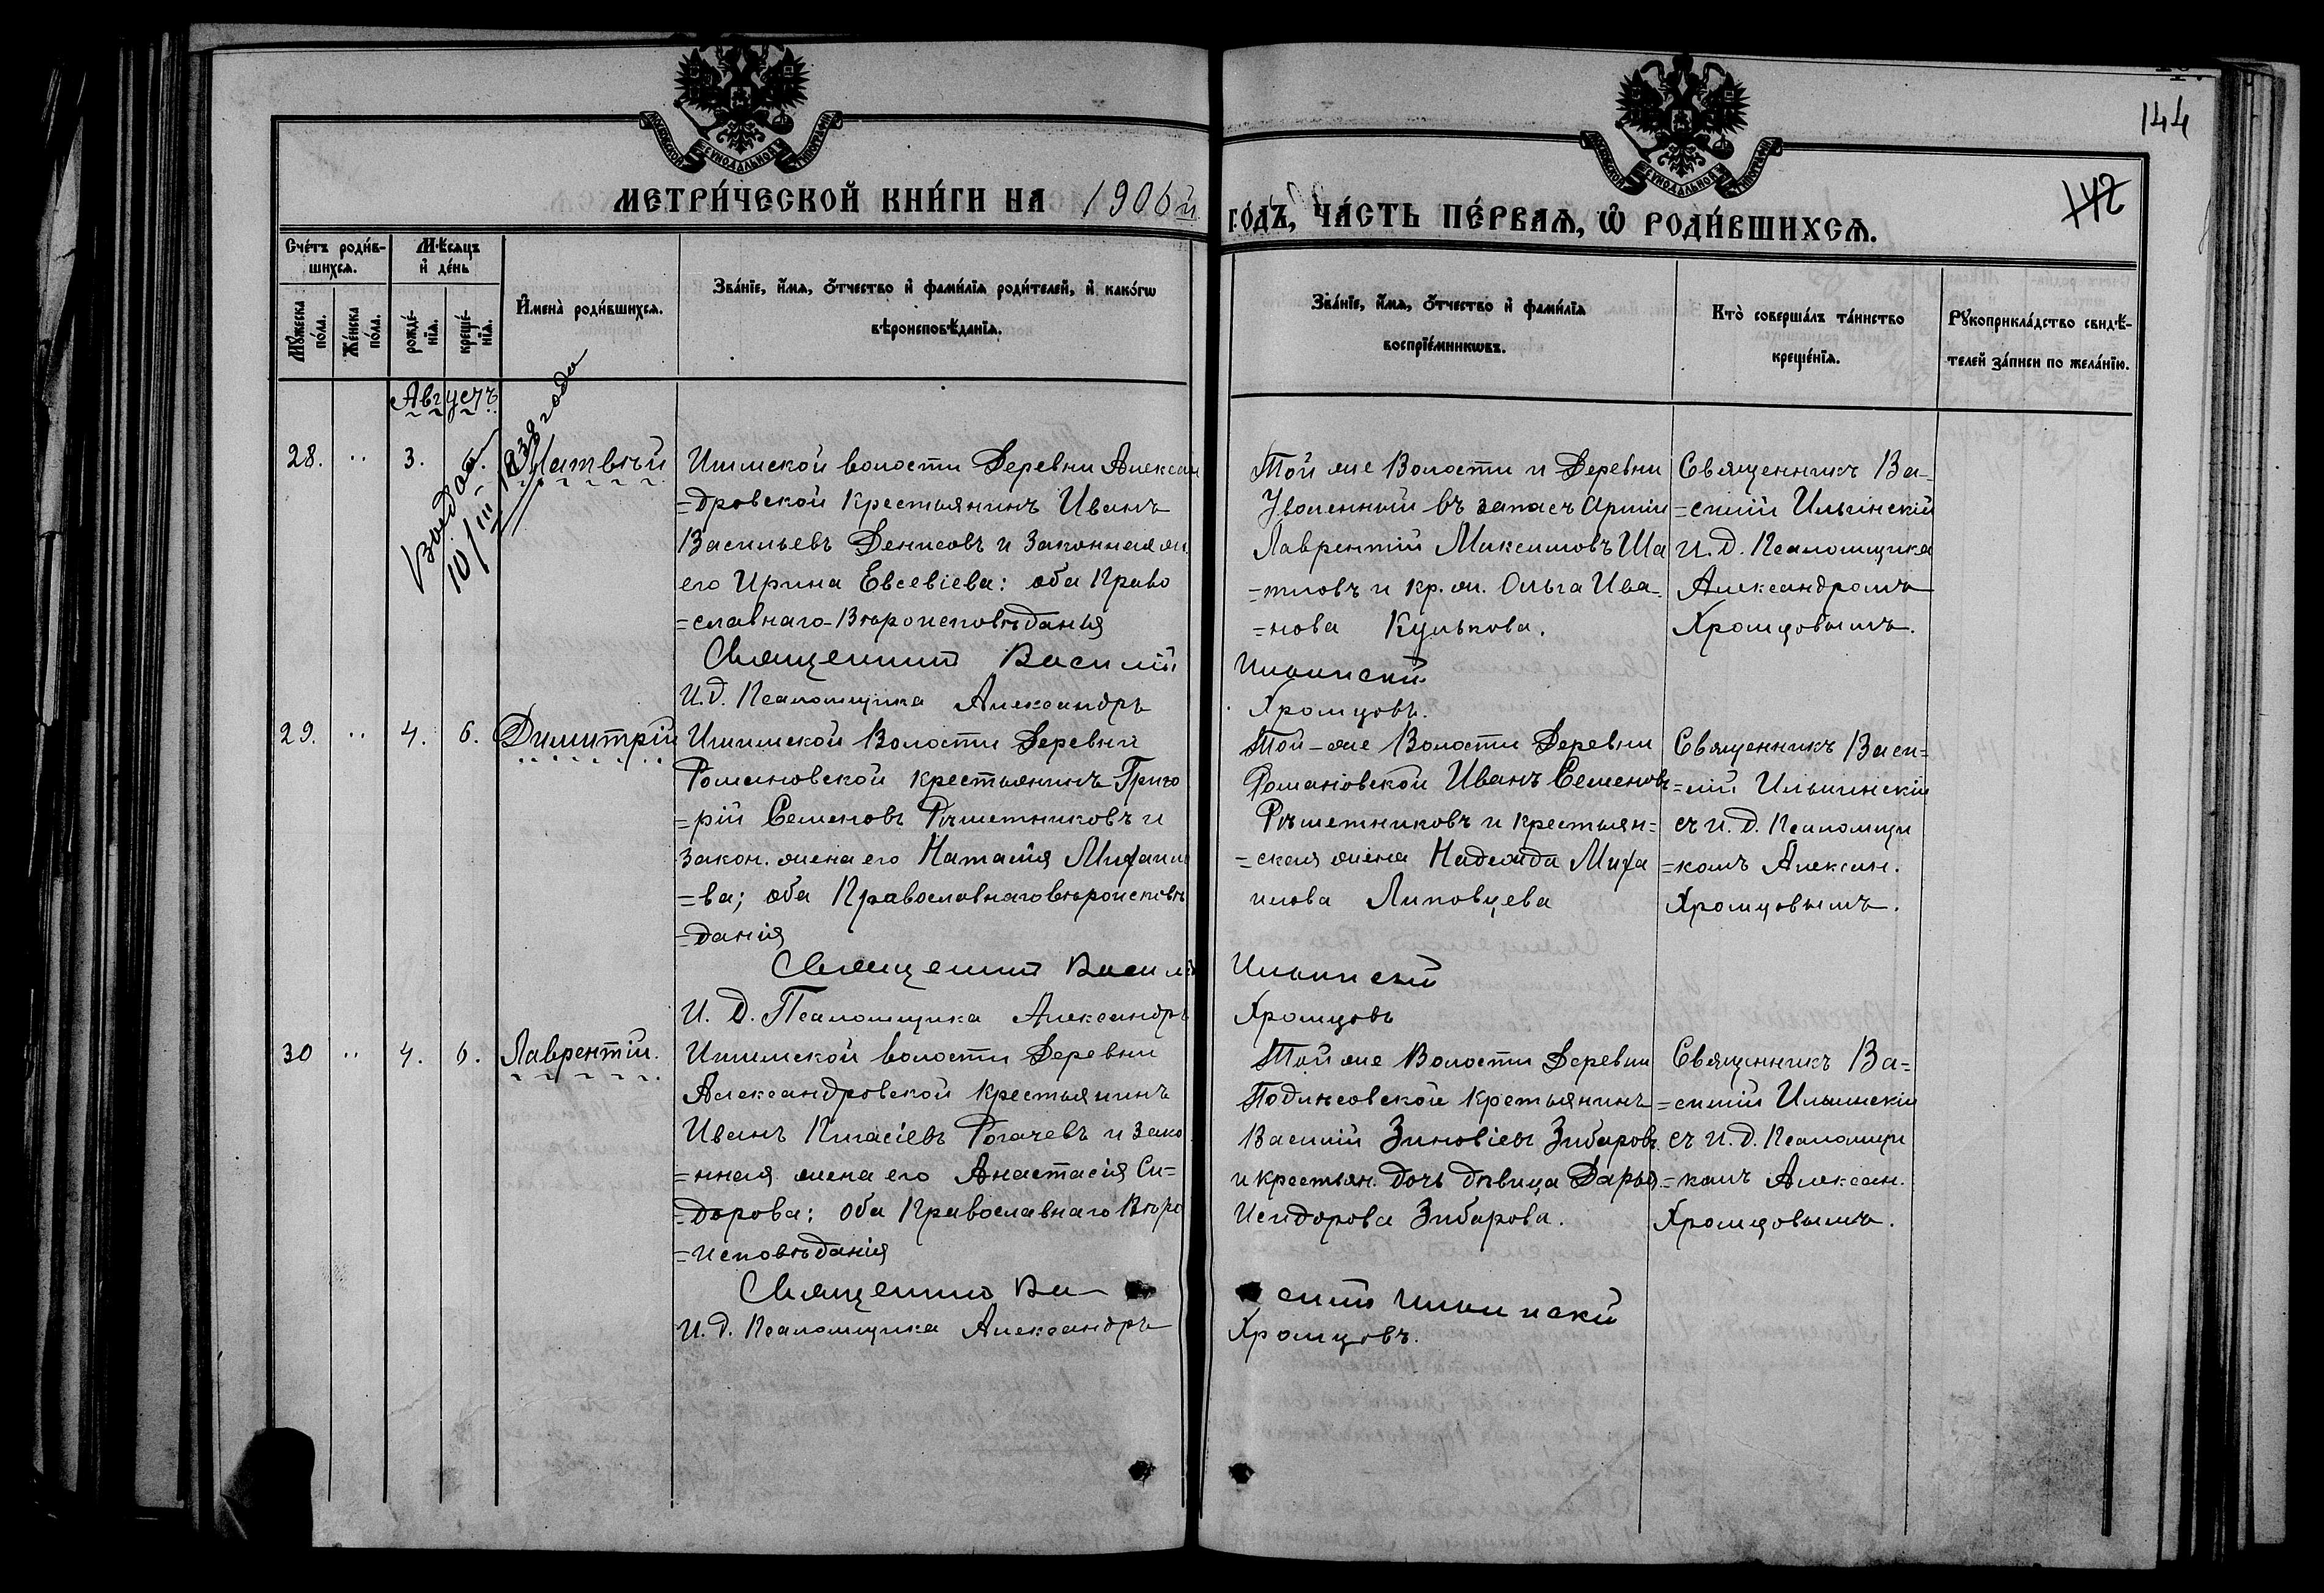 144
142
МЕТРИ́ЧЕСКОЙ КНИ́ГИ НА 1906й
ГО́ДЪ, ЧА́СТЬ ПЕ́РВАЯ, Ѡ РОДИ́ВШИХСЯ.
Сче́тъ роди́в-
шихся.
Мѣсяцъ
и де́нь
Му́жеска по́ла.
Же́нска по́ла.
рожде́-
нїя.
креще́-
нїя.
Имена̀ роди́вшихся.
Зва́нїе, и́мя, о́тчество и фами́лїя роди́телей, и како́гѡ
вѣроисповѣ́данїя.
Зва́нїе, и́мя, о́тчество и фами́лїя
воспрїе́мниковъ.
Кто̀ соверша́лъ та́инство
креще́нїя.
Рꙋкоприкла́дство свидѣ́-
телей за́писи по жела́нїю.
Августъ
28. .. 3. 6. Матвѣй
10/III 1938 года
Ишимской волости Деревни Алексан
=дровской крестьянинъ Иванъ
Васильевъ Денисовъ и законная ж.
его Ирина Евсевіева: оба Право
=славнаго Вѣроисповѣданія
Священникъ Василій
И.д. Псаломщика Александръ
Той же Волости и Деревни
Уволенный въ запасъ Арміи
Лаврентій Максимовъ Ша
=тловъ и кр. ж. Ольга Ива
=нова Кулькова.
Ильинскій
Хромцовъ.
Священникъ Ва-
=силій Ильинскій
И.д. Псаломщика
Александромъ
Хромцовымъ.
29. .. 4. 6. Димитрій
Ишимской Волости Деревни
Романовской крестьянинъ Григо
=рій Семеновъ Рѣшетниковъ и
закон. жена его Наталія Михаило
=ва; оба Православнаго вѣроисповѣ
=данія
Священникъ Василій
И. Д. Псаломщика Александръ
Той-же Волости Деревни
Романовской Иванъ Семеновъ
Рѣшетниковъ и крестьян=
=ская жена Надежда Миха
илова Липовцева
Ильинскій
Хромцовъ
Священникъ Васи=
=лій Ильинскій
съ И.д. Псаломщи
=комъ Алексан.
Хромцовымъ.
30 .. 4. 6. Лаврентій.
Ишимской волости Деревни
Александровской крестьянинъ
Иванъ Рогачевъ и зако
=нная жена его Анастасія Си=
=дорова; оба Православнаго Вѣро
=исповѣданія
Священникъ Ва-
И.д. Псаломщика Александръ
Той же Волости Деревни
Крестьянинъ
Василій Зиновіевъ Зибаровъ
и крестьян. дочь дѣвица Дарья
Исидорова Зибарова.
силій Ильинскій
Хромцовъ.
Священникъ Ва=
=силій Ильинскій
съ И.д. Псаломщи
=комъ Алексан.
Хромцовымъ.